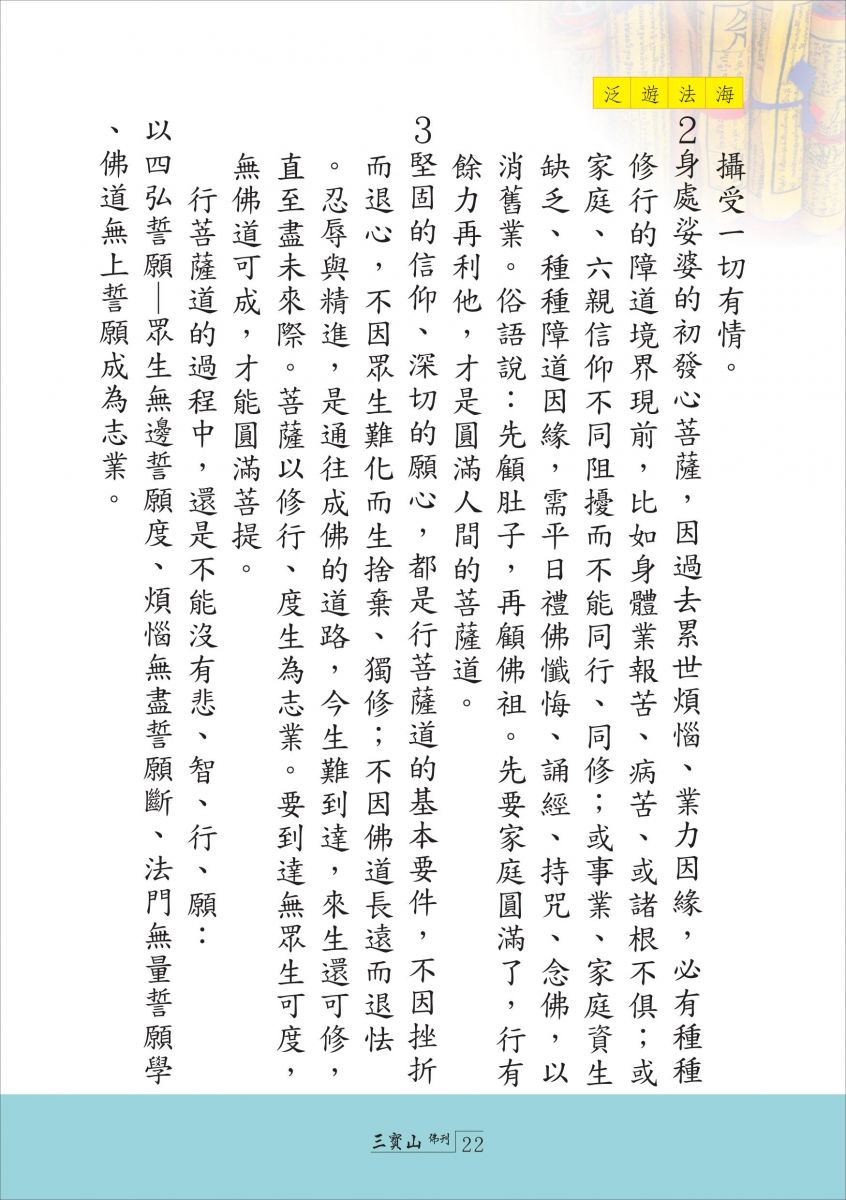 泛遊法海
攝受一切有情。
2身處娑婆的初發心菩薩，因過去累世煩惱、業力因緣，必有種種
修行的障道境界現前，比如身體業報苦、病苦、或諸根不俱；或
家庭、六親信仰不同阻擾而不能同行、同修；或事業、家庭資生
缺乏、種種障道因緣，需平日禮佛懺悔、誦經、持咒、念佛，以
消舊業。俗語說：先顧肚子，再顧佛祖。先要家庭圓滿了，行有
餘力再利他，才是圓滿人間的菩薩道。
3堅固的信仰、深切的願心，都是行菩薩道的基本要件，不因挫折
而退心，不因眾生難化而生捨棄、獨修；不因佛道長遠而退怯
。忍辱與精進，是通往成佛的道路，今生難到達，來生還可修，
直至盡未來際。菩薩以修行、度生為志業。要到達無眾生可度，
無佛道可成，才能圓滿菩提。
行菩薩道的過程中，還是不能沒有悲、智、行、願：
以四弘誓願—眾生無邊誓願度、煩惱無盡誓願斷、法門無量誓願學
、佛道無上誓願成為志業。
三寶山 佛刊 22